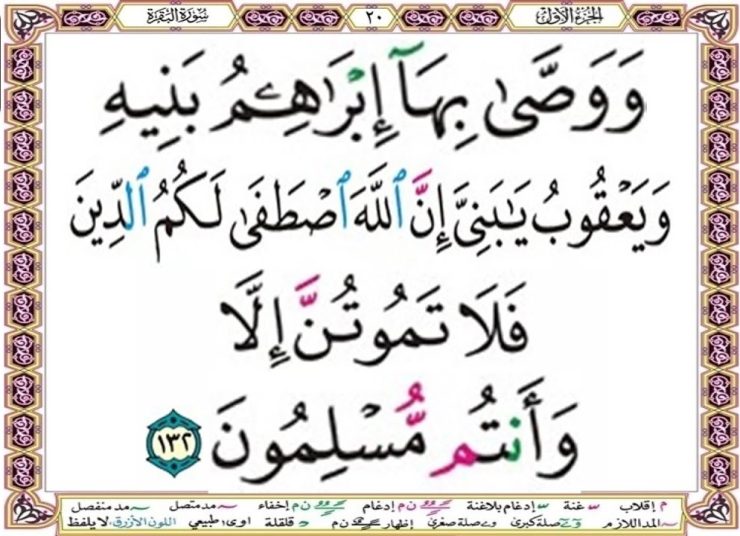 الجزء الأول ٢٠ سورة البقرة
وَوَصَّىٰ بِهَآ إِبْرَٰهِـۧمُ بَنِيهِ
وَيَعْقُوبُ يَـٰبَنِىَّ إِنَّ ٱللَّهَ ٱصْطَفَىٰ لَكُمُ ٱلدِّينَ
فَلَا تَمُوتُنَّ إِلَّا
وَأَنتُم مُّسْلِمُونَ ١٣٢
م إقلاب غنة إدغام بلاغنة ن م إدغام ن م إخفاء مد متصل مد منفصل
المد اللازم صلة كبرى صلة صغرى إظهار ن م قلقلة اوى: طبيعي اللون الأزرق: لا يلفظ